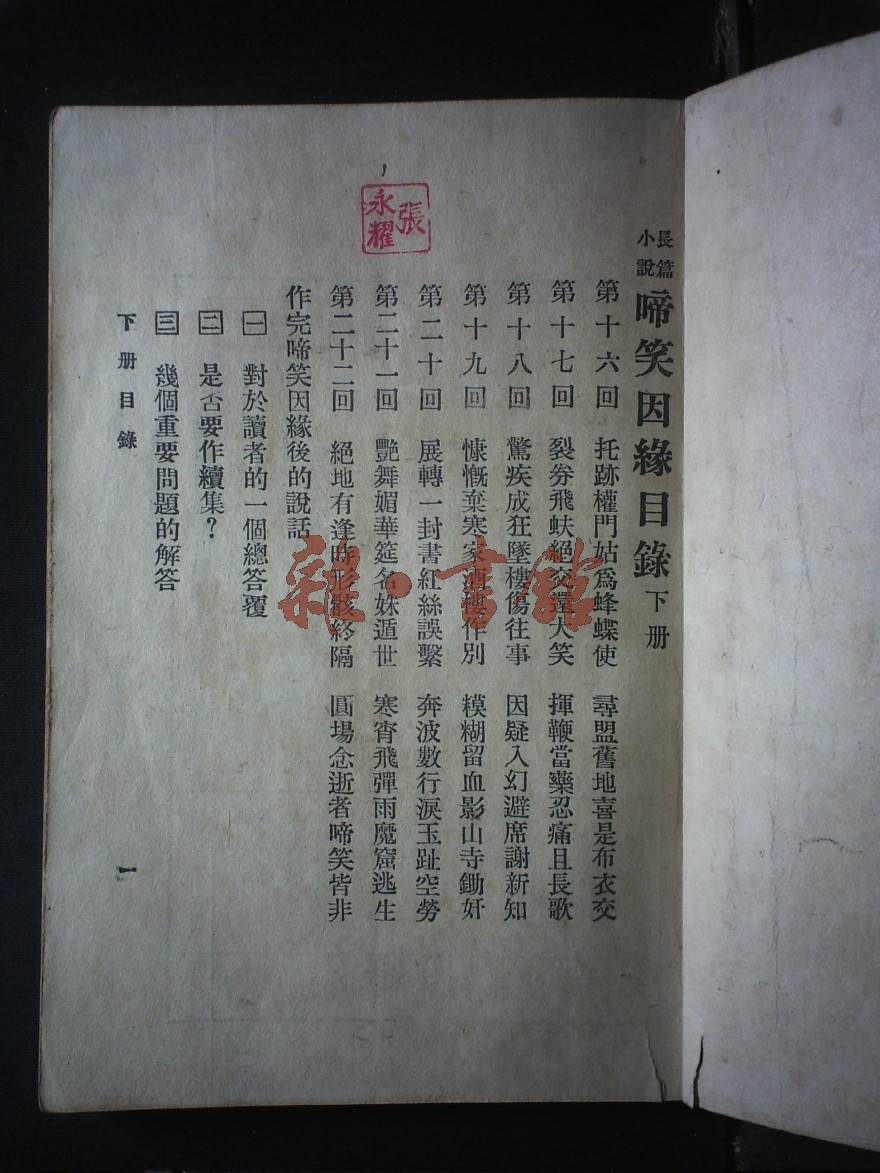 長篇小說 啼笑因緣目錄 下册
第十六回 托跡權門姑爲蜂蝶使 尋盟舊地喜是布衣交
第十七回 裂券飛蚨絕交還大笑 揮鞭當藥忍痛且長歌
第十八回 驚疾成狂墜樓傷往事 因疑入幻避席謝新知
第十九回 慷慨棄寒家酒樓作別 糢糊留血影山寺鋤奸
第二十回 展轉一封書紅絲誤繫 奔波數行淚玉趾空勞
第二十一回 艷舞媚華筵名姝遁世 寒宵飛彈雨魔窟逃生
第二十二回 絕地有逢時形骸終隔 圓場念逝者啼笑皆非
作完啼笑因緣後的說話
一 對於讀者的一個總答覆
二 是否要作續集？
三 幾個重要問題的解答
下册目錄
一
張永耀
雜·書館